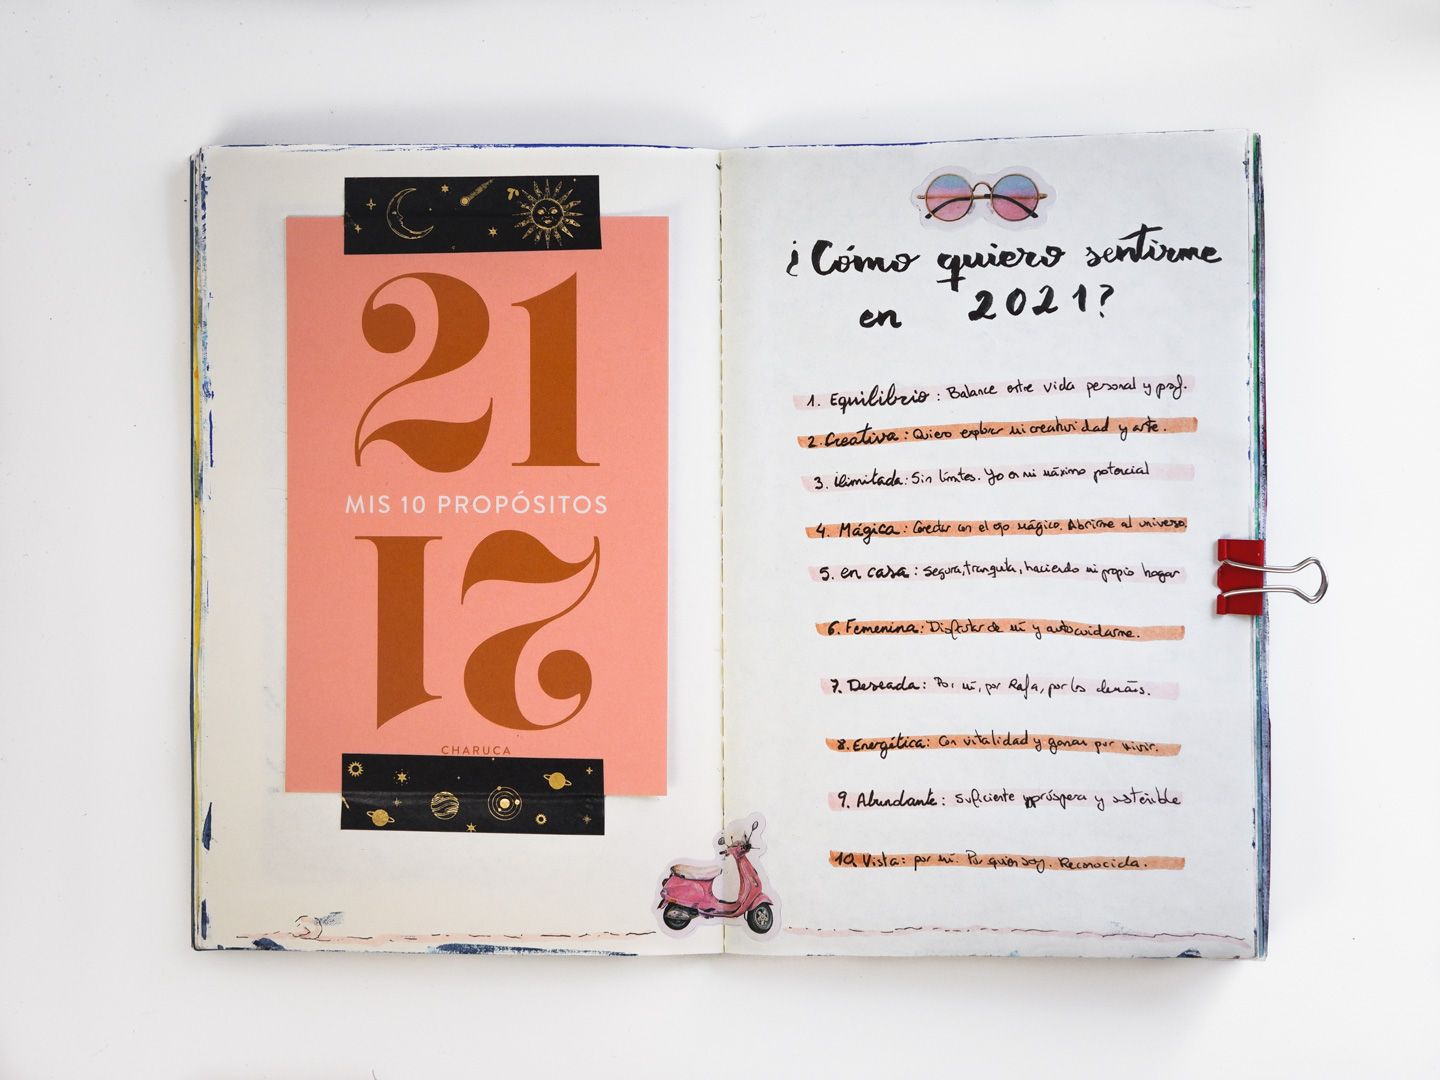 21
MIS 10 PROPÓSITOS
21
CHARUCA
¿Cómo quiero sentirme
en 2021?
1. Equilibrio: Balance entre vida personal y prof.
2. Creativa: Quiero explorar mi creatividad y arte.
3. ilimitada: Sin límites. Yo en mi máximo potencial
4. Mágica: Conectar con el ojo mágico. Abrirme al universo.
5. en casa: Segura, tranquila, haciendo mi propio hogar
6. Femenina: Disfrutar de mí y autocuidarme.
7. Deseada: Por mí, por Rafa, por los demás.
8. Energética: Con vitalidad y ganas por vivir.
9. Abundante: Suficiente próspera y sostenible
10. Vista: por mí. Por quien soy. Reconocida.